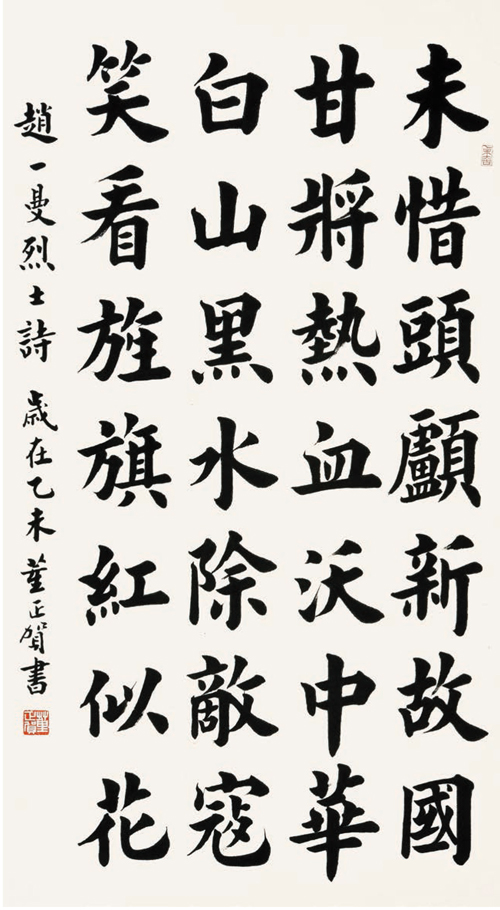 未惜頭顱新故國
甘將熱血沃中華
白山黑水除敵寇
笑看旌旗紅似花
趙一曼烈士詩 歲在乙未 董正賀書